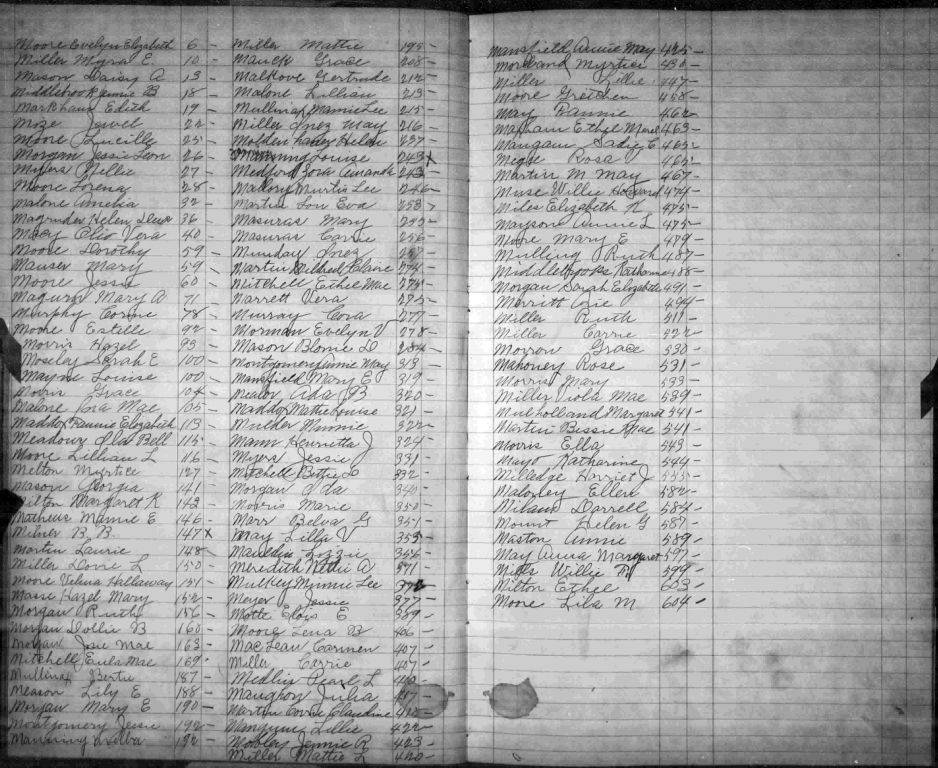 Moore Evelyn Elizabeth 6 -
Miller Myra E. 10 -
Mason Daisy A 13 -
Middlebrook Jennie B 18 -
Markham Edith 19 -
Moze Jewel 22 -
Moore Lucille 25 -
Morgan Jessie Leon 26 -
Myers Nellie 27 -
Moore Lorena 28 -
Malone Amelia 32 -
Magruder Helen 36 -
Macy Olio Vera 40 -
Moore Dorothy 59 -
Mauser Mary 59 -
Moore Jessie 60 -
Maguru Mary A 71 -
Murphy Corine 78 -
Moore Estelle 92 -
Morris Hazel 93 -
Moseley Sarah E 100 -
Mayne Louise 100 -
Morris Grace 104 -
Malone Iora Mae 105 -
Maddox Fannie Elizabeth 113 -
Meadows Ola Bell 115 -
Moore Lillian L 116 -
Melton Myrtice 127 -
Mason Georgia 141 -
Milton Margaret K 142 -
Mathews Mamie E 146 -
Milner B. B. 147 x
Martin Laurie 148 -
Miller Dovie L 150 -
Moore Velma Hallaway 151 -
Masse Hazel Mary 152 -
Morgan Ruth 156 -
Morgan Dollie B 160 -
Morgan Josie Mae 163 -
Mitchell Eula Mae 169 -
Mullinax Bertie 187 -
Meason Lily E 188 -
Morgan Mary E 190 -
Montgomery Jessie 192 -
Manning Melba 192 -
Miller Mattie 195 -
Mauck Grace 208 -
Malkove Gertrude 212 -
Malone Lillian 213 -
Mullinax Mamie Lee 215 -
Miller Inez May 216 -
Molden Nancy Helen 237 -
Manning Louise 243 x
Medford Zora Amanda 243 -
Mallory Murtis Lee 246 -
Martin Lou Eva 253 -
Masuras Mary 255 -
Masuras Carrie 256 -
Munday Inez 257 -
Martin Mildred Claire 274 -
Mitchell Ethel Mae 274 -
Marrett Vera 275 -
Murray Cora 277 -
Morman Evelyn V 278 -
Mason Blomie D 284 -
Montgomery Annie May 313 -
Mansfield Mary E 319 -
Mealor Ada B 320 -
Maddox Mattie Louise 321 -
Mulder Minnie 322 -
Mann Henrietta J 324 -
Myers Jessie 331 -
Mitchell Bettie D 332 -
Morgan Ida 340 -
Morris Marie 350 -
Marr Belva G 351 -
May Lilla V 353 -
Mauldin Lizzie 356 -
Meredith Nettie A 371 -
Mulkey Minnie Lee 372 -
Meyer Jessie 377 -
Motte Elois E 389 -
Moore Lena B 406 -
MacLean Carmen 407 -
Miller Carrie 407 -
Medlin Pearl L 410 -
Maughon Julia 417 -
Martin Corrie Claudine 415 -
Mangum Lillie 422 -
Mobley Jennie R 423 -
Miller Mattie L 420 -
Mansfield Annie May 425 -
Moreland Myrtice 430 -
Miller Lillie 447 -
Moore Gretchen 458 -
May Fannie 462 -
Mapham Ethel 463 -
Mangam Sadie E 465 -
Megee Rosa 465 -
Martin M May 467 -
Muse Willie Howard 474 -
Miles Elizabeth K 475 -
Mayson Annie L 475 -
Moore Mary E 479 -
Mulling Ruth 487 -
Middlebrooks Katharine 488 -
Morgan Sarah Elizabeth 491 -
Merritt Ozie 494 -
Miller Ruth 511 -
Miller Carrie 522 -
Morrow Grace 530 -
Mahoney Rose 531 -
Morris Mary 533 -
Miller Viola Mae 539 -
Mulholland Margaret 541 -
Martin Bessie Mae 541 -
Morris Ella 543 -
Mayo Katharine 544 -
Milledge Harriet J 555 -
Maloney Ellen 582 -
Milam Darrell 584 -
Mount Helen G 587 -
Maston Annie 589 -
May Anna Margaret 597 -
Mills Willie R 599 -
Milton Ethel 603 -
Moore Lila M 604 -